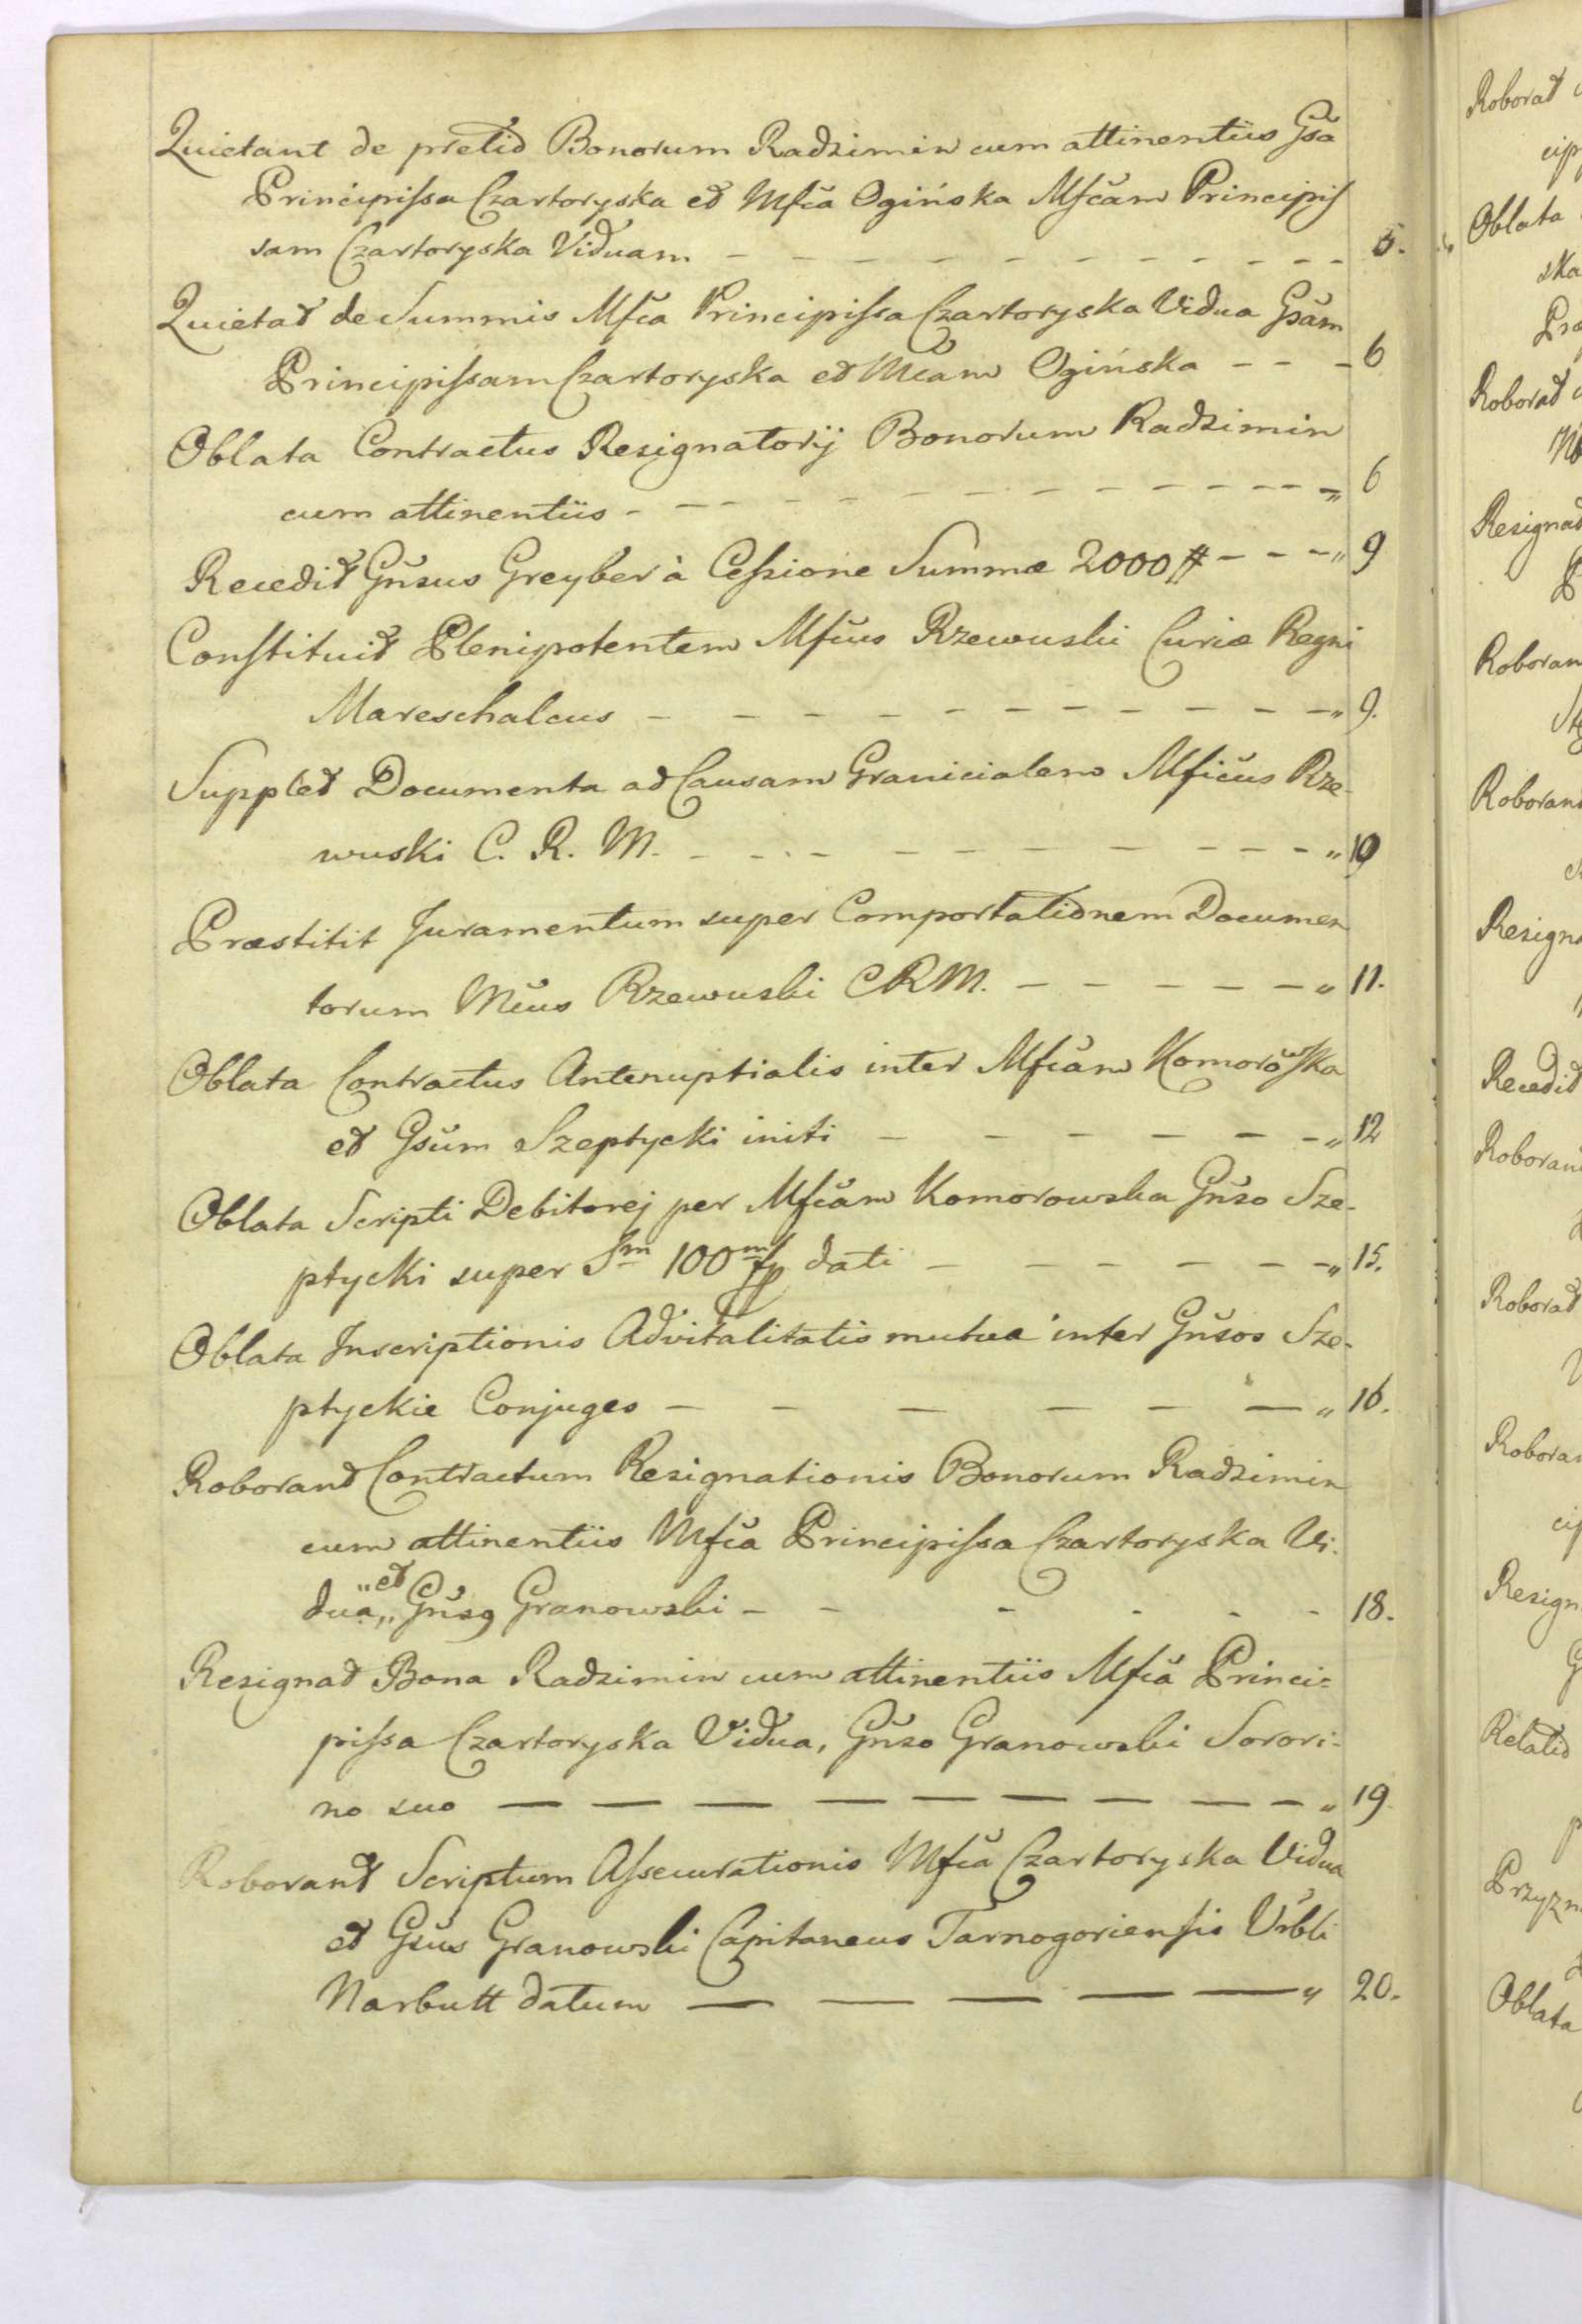 Quietant de pretio Bonorum Radzimin cum attinentiis Gsa
Principissa Czartoryska et Mfca Ogińska Mfcam Principis
sam Czartoryska Viduam - - - - - - - - - - - 5.
Quietat de Summis Mfca Principissa Czartoryska Vidua Gsam
Principissam Czartoryska et Mcam Ogińska - - - 6
Oblata Contractus Resignatorij Bonorum Radzimin
cum attinentiis - - - - - - - - - - - - " 6
Recedit Gnsus Greyber à Cessione Summæ 2000 # - - - " 9
Constituit Plenipotentem Mfcus Rzewuski Curiæ Regni
Mareschalcus - - - - - - - - - - " 9.
Supplet Documenta ad Causam Granicialem Mficus Rze-
wuski C. R. M. - - - - - - - - - - " 10
Præstitit Juramentum super Comportationem Documen
torum Mcus Rzewuski CRM. - - - - - " 11.
Oblata Contractus Antenuptialis inter Mfcam Komorowska
et Gsum Szeptycki initi - - - - - - " 12
Oblata Scripti Debitorej per Mfcam Komorowska Gnso Sze-
ptycki super Sm 100m fp dati - - - - - - " 15.
Oblata Inscriptionis Advitalitatis mutuæ inter Gnsos Sze-
ptyckie Conjuges - - - - - - " 16.
Roborant Contractum Resignationis Bonorum Radzimin
cum attinentiis Mfca Principissa Czartoryska Vi-
dua, "et" Gnsg Granowski - - - - - - 18.
Resignat Bona Radzimin cum attinentiis Mfca Princi=
pissa Czartoryska Vidua, Gnso Granowski Sorori-
no suo - - - - - - - - - " 19.
Roborant Scriptum Assecurationis Mfca Czartoryska Vidua
et Gsus Granowski Capitaneus Tarnogoriensis Urbli
Narbutt datum - - - - - " 20.
Roborat
cip
Oblata
ska
Roborat
Resignat
Roboran
Roborant
Resigna
Recedit
Roborant
Roborat
Roboran
cip
Resign
Relatio
Przyzn
Oblata